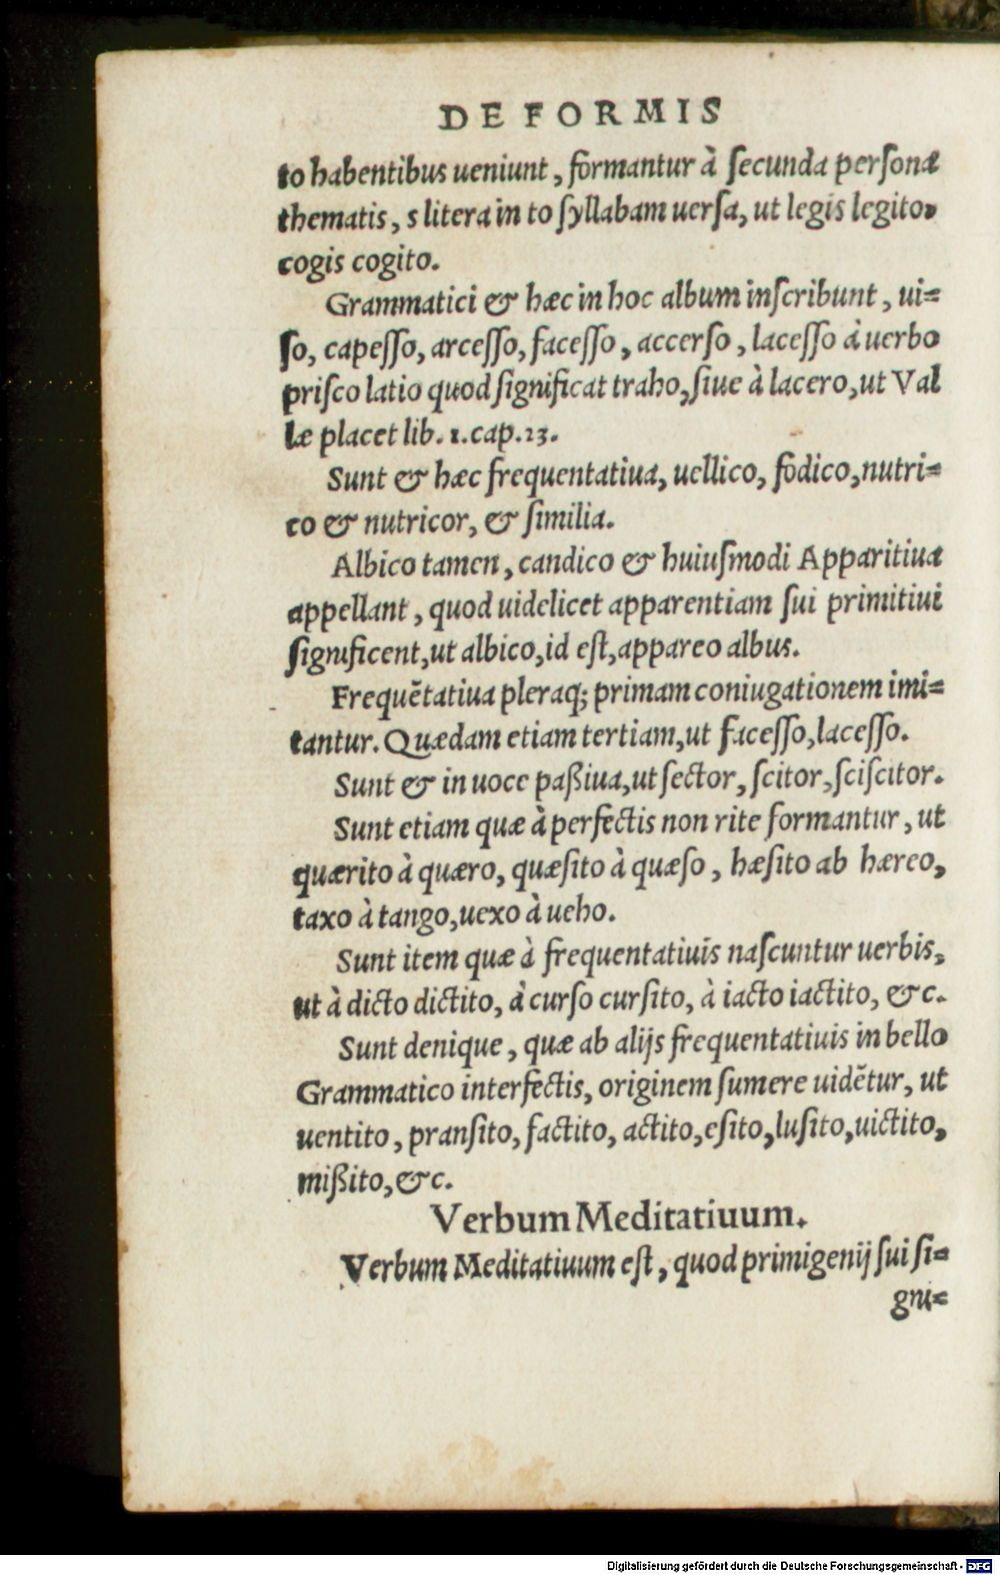 DE FORMIS
to habentibus ueniunt, formantur à secunda persona
thematis, s litera in to syllabam uersa, ut legis legito,
cogis cogito.
Grammatici & hæc in hoc album inscribunt, ui=
so, capesso, arcesso, facesso, accerso, lacesso à uerbo
prisco latio quod significat traho, siue à lacero, ut Val
læ placet lib. 1. cap. 23.
Sunt & hæc frequentatiua, uellico, fodico, nutri=
co & nutricor, & similia.
Albico tamen, candico & huiusmodi Apparitiua
appellant, quod uidelicet apparentiam sui primitiui
significent, ut albico, id est, appareo albus.
Frequẽtatiua pleraq; primam coniugationem imi=
tantur. Quædam etiam tertiam, ut facesso, lacesso.
Sunt & in uoce paßiua, ut sector, scitor, sciscitor.
Sunt etiam quæ à perfectis non rite formantur, ut
quærito à quæro, quæsito à quæso, hæsito ab hæreo,
taxo à tango, uexo à ueho.
Sunt item quæ à frequentatiuis nascuntur uerbis,
ut à dicto dictito, à curso cursito, à iacto iactito, &c.
Sunt denique, quæ ab alijs frequentatiuis in bello
Grammatico interfectis, originem sumere uidẽtur, ut
uentito, pransito, factito, actito, esito, lusito, uictito,
mißito, &c.
Verbum Meditatiuum.
Verbum Meditatiuum est, quod primigenij sui si=
gni=
Digitalisierung gefördert durch die Deutsche Forschungsgemeinschaft - DFG